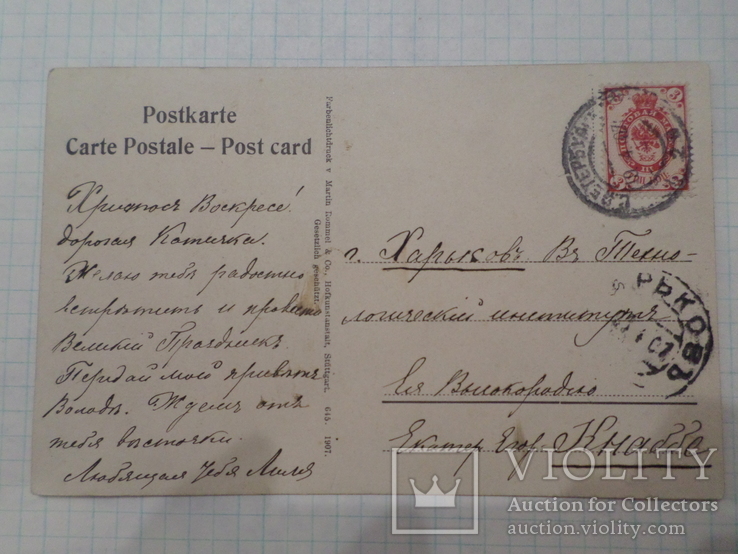 Postkarte
Carte Postale – Post card
Христосъ Воскресе!
дорогая Катичка.
Желаю тебѣ радостно
встрѣтить и провести
Великій Праздникъ.
Передай мой привѣтъ
Володѣ. Ждемъ отъ
тебя высточки.
Любящая тебя Лиля
Farbenlichtdruck v Martin Rommel & Co., Hofkunstanstalt, Stuttgart. 645. 1907.
Gesetzlich geschützt.
3
г. Харьковъ Въ Техно-
логическій институтъ
Ея Высокородію
Екатер Егор. Кнаббе
VIOLITY
Auction for Collectors
auction.violity.com